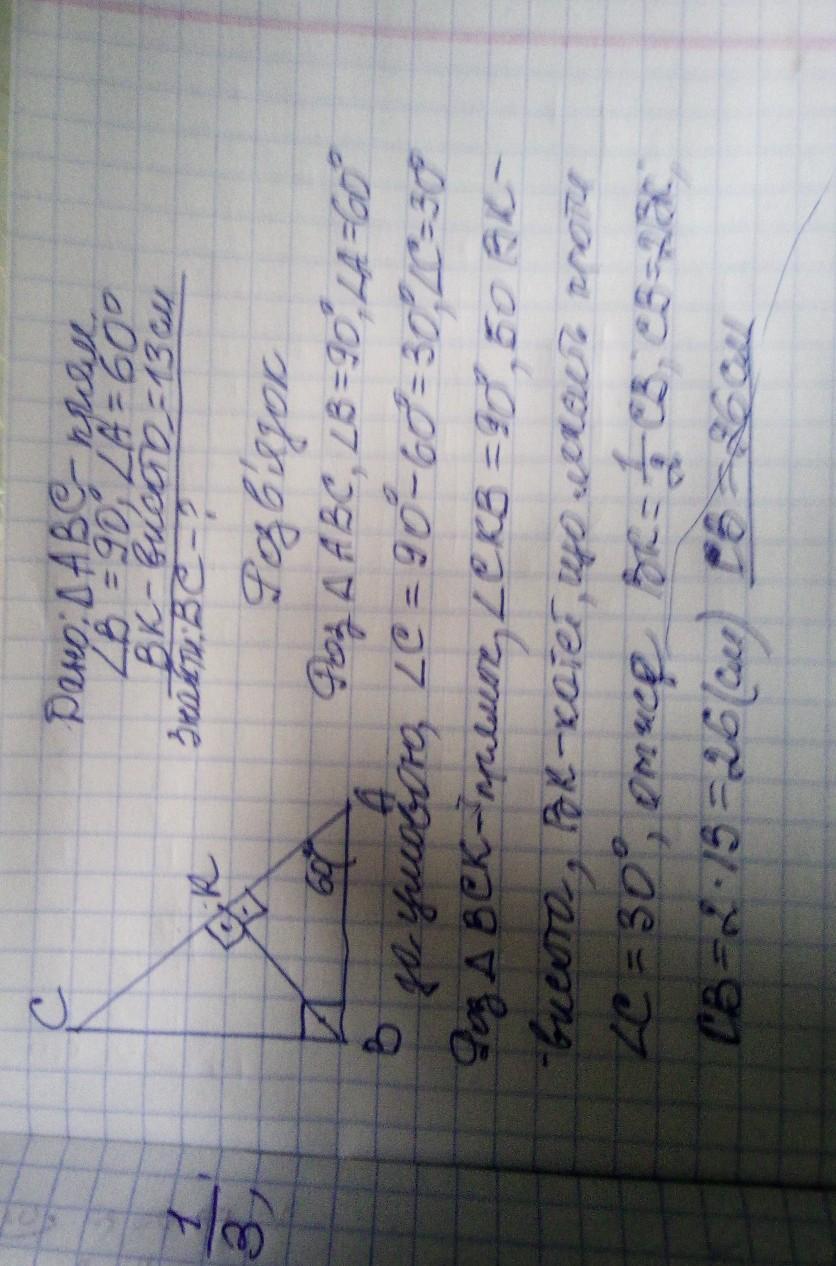 Дано: ΔABC - прям.
∠B = 90°, ∠A = 60°
BK - висота = 13 см
Знайти: BC - ?
Розв'язок
C
K
60°
A
B
Роз ΔABC, ∠B = 90°, ∠A = 60°
за умовою, ∠C = 90° - 60° = 30°, ∠C = 30°
Роз ΔBCK - прямок, ∠CKB = 90°, БО BK -
-висота, BK - катет, що лежить проти
∠C = 30°, отже BK = 1/2 CB; CB = 2BK;
CB = 2 · 13 = 26 (см) CB = 26 см
1/3,